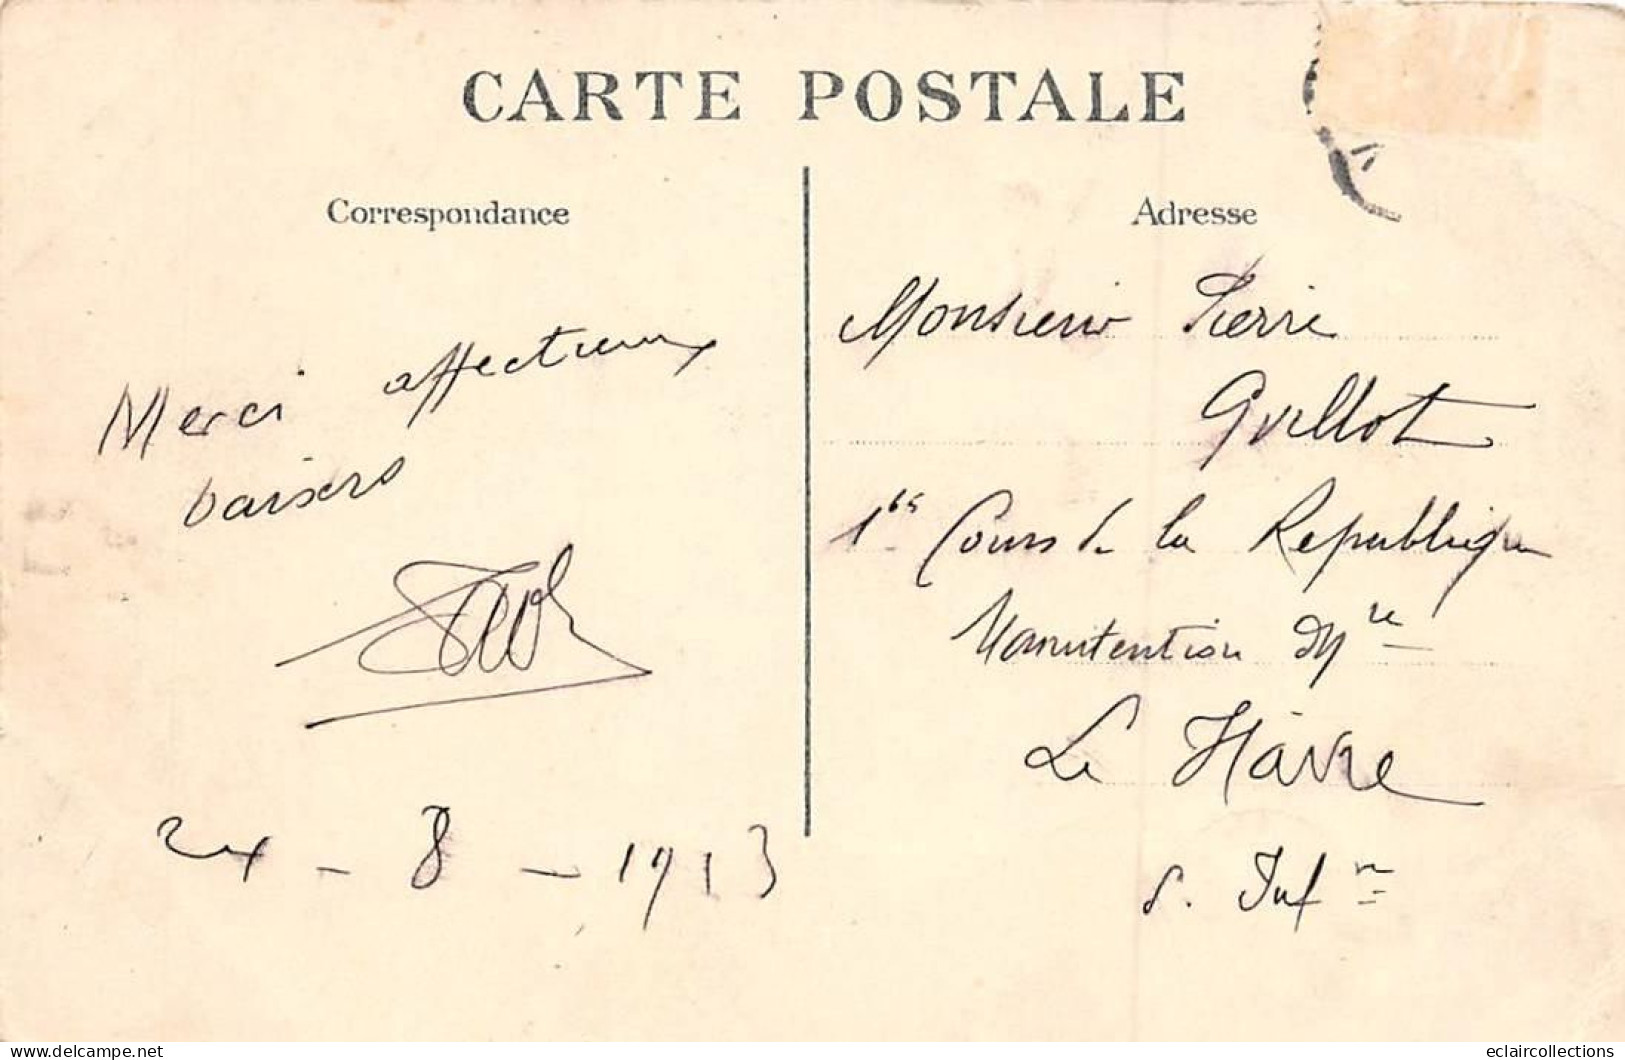 CARTE POSTALE
Correspondance
Merci affectueux
baisers
24 - 8 - 1913
Adresse
Monsieur Pierre
Guillot
1 bis Cours de la Republique
Manutention Mre
Le Hâvre
S. Infre
eclaircollections
www.delcampe.net